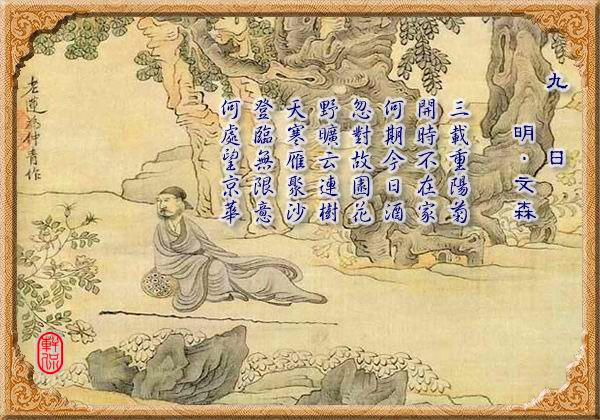 九日
明·文森
三載重陽菊
開時不在家
何期今日酒
忽對故園花
野曠云連樹
天寒雁聚沙
登臨無限意
何處望京華
老蓮為仲青作